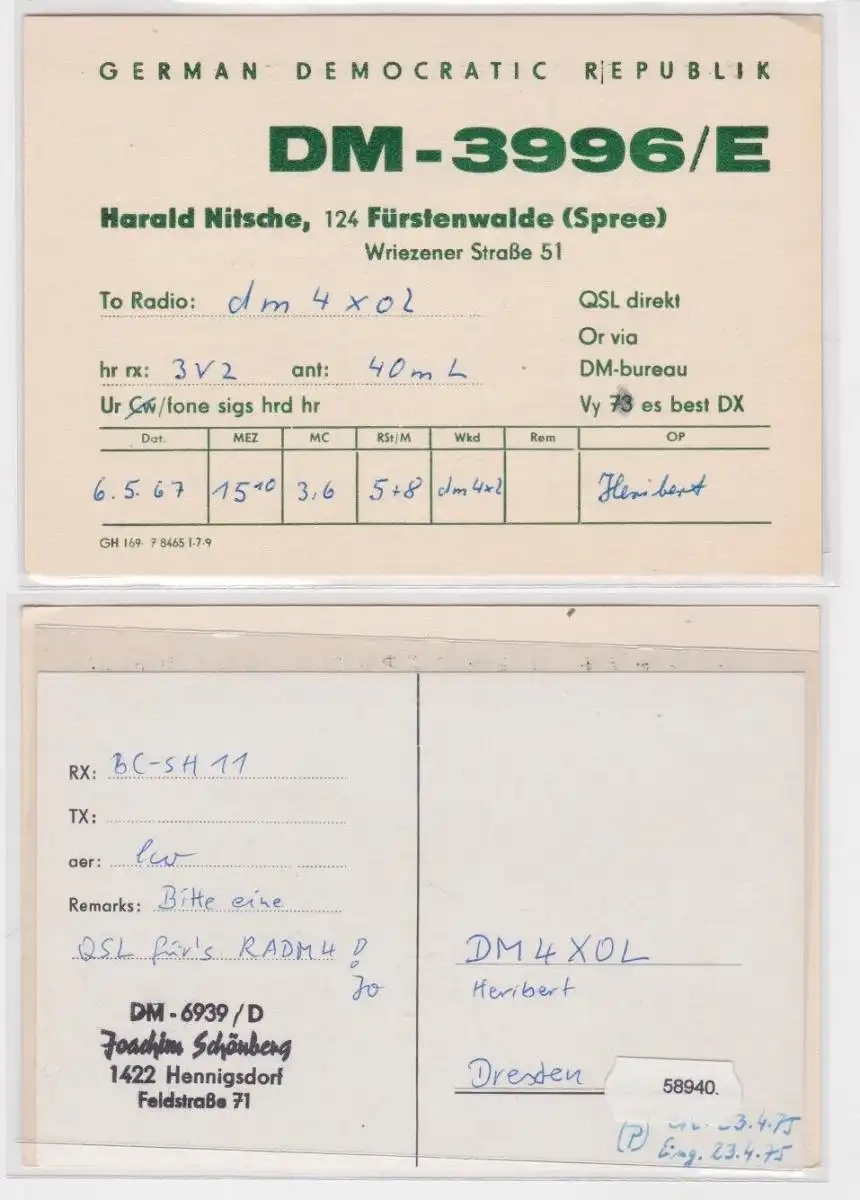 GERMAN DEMOCRATIC REPUBLIK
DM-3996/E
Harald Nitsche, 124 Fürstenwalde (Spree)
Wriezener Straße 51
To Radio: dm 4 x o l
QSL direkt
Or via
hr rx: 3V2 ant: 40m L
DM-bureau
Ur CW/fone sigs hrd hr
Vy 73 es best DX
Dat. MEZ MC RSt/M Wkd Rem OP
6.5.67 15 10 3,6 5+8 dm4xl Heribert
GH 169- 7 8465 I-7-9
RX: BC-SH 11
TX:
aer: lw
Remarks: Bitte eine
QSL für's RADM4!
Jo
DM-6939/D
Joachim Schönberg
1422 Hennigsdorf
Feldstraße 71
DM4XOL
Heribert
Dresden
58940.
23.4.75
(P) Eing. 23.4.75